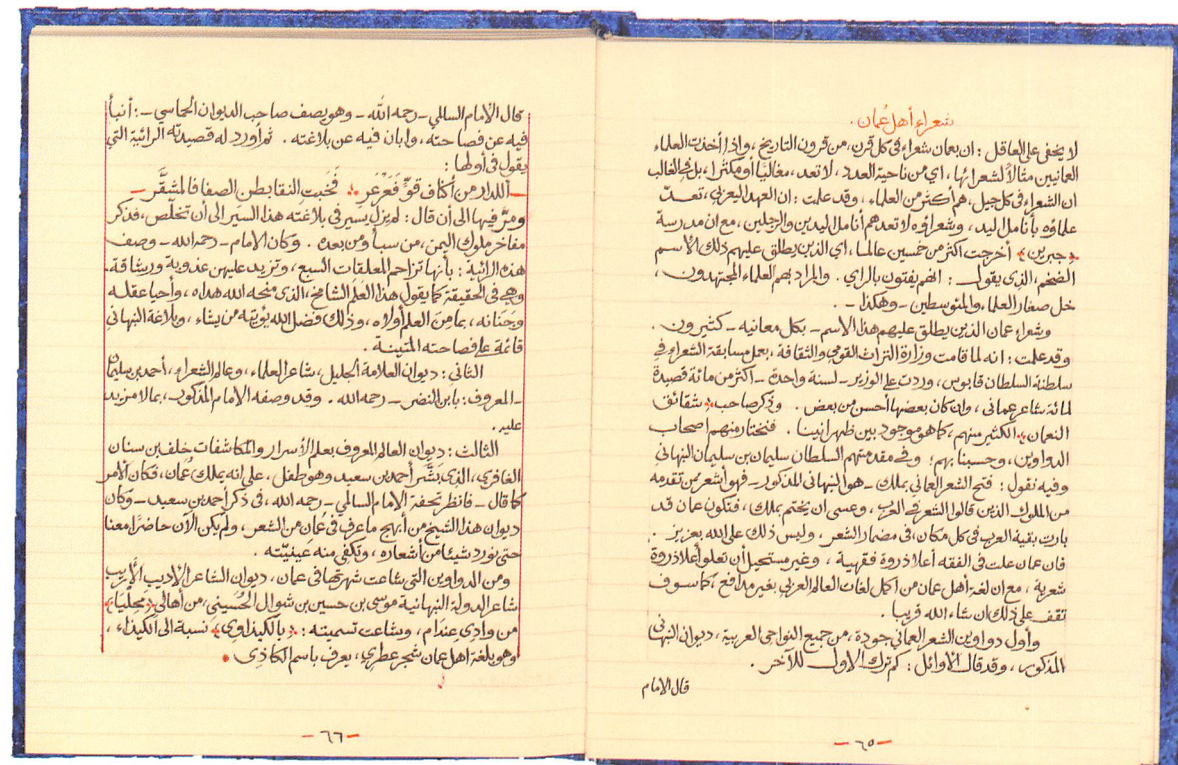 شعراء أهل عُمان.
لا يخفى على العاقل : ان بعمان شعراء فى كل قرن، من قرون التاريخ ، واذا أخذت العلماء
العمانيين مثالاً لشعرائها، اي من ناحية العدد، لا تعد، مغاليًا أو مكثرا، بل في الغالب
ان الشعراء فى كل جيل، هم أكثر من العلماء، وقد علمت : ان العهد اليعربي، تعدّ
علماؤه بأنامل اليد، وشعراؤه لا تعدهم أنامل اليدين والرجلين، مع ان مدرسة
﴿جبرين﴾ أخرجت أكثر من خمسين عالما، اي الذين يطلق عليهم ذلك الاسم
الضخم، الذى يقول : انهم يفتون بالراي . والمراد بهم العلماء المجتهدون ،
خل صغار العلماء، والمتوسطين – وهكذا – .
وشعراء عمان الذين يطلق عليهم هذا الاسم – بكل معانيه – كثيرون .
وقد علمت : انه لما قامت وزارة التراث القومي والثقافة ، بعمل مسابقة الشعراء في
سلطنة السلطان قابوس، وردت على الوزير – لسنة واحدة – أكثر من مائة قصيدة
لمائة شاعر عماني ، وان كان بعضها أحسن من بعض . وذكر صاحب ﴿شقائق
النعمان﴾ الكثير منهم، كما هو موجود بين ظهرانينا . فنختار منهم اصحاب
الدواوين، وحسبنا بهم؛ وفي مقدمتهم السلطان سليمان بن سليمان النبهاني
وفيه نقول : فتح الشعر العماني بملك – هو النبهاني المذكور – فهو أشعر من تقدمه
من الملوك الذين قالوا الشعر في العرب ، وعسى ان يختتم بملك ، فتكون عمان قد
بارت بقية العرب في كل مكان، فى مضمار الشعر ، وليس ذلك على الله بعزيز .
فان عمان علت فى الفقه أعلا ذروة فقهية ، وغير مستحيل أن تعلو أعلا ذروة
شعرية ، مع ان لغة أهل عمان من اكمل لغات العالم العربي بغير مدافع ، كما سوف
تقف على ذلك ان شاء الله قريبا .
وأول دواوين الشعر العماني جودة ، من جميع النواحى العربية ، ديوان النبهاني
المذكور ، وقد قال الأوائل : كم ترك الاول للآخر .
قال الامام
– ٦٥ –
قال الامام السالمي – رحمه الله – وهو يصف صاحب الديوان الحماسي – : أنبأ
فيه عن فصاحته ، وابان فيه عن بلاغته . ثم أورد له قصيدته الرائية التي
يقول فى أولها :
– أللدار من أكناف قوٍّ فعرعر ﴿﴾ فخبت النقا بطن الصفا فالمشقر –
ومرّ فيها الى أن قال : لم يزل يسير في بلاغته هذا السير الى أن تخلّص ، فذكر
مفاخر ملوك اليمن ، من سبأ ومن بعده . وكان الامام – رحمه الله – وصف
هذه الرائية : بأنها تزاحم المعلقات السبع ، وتزيد عليهن عذوبة ورشاقة .
وهي فى الحقيقة كما يقول هذا العَلَم الشامخ ، الذى منحه الله هداه ، وأحيا عقله
وجَنانه ، بما من العلم أولاه ، وذلك فضل الله يؤتيه من يشاء ، وبلاغة النبهاني
قائمة على فصاحته المتينة .
الثاني : ديوان العلامة الجليل ، شاعر العلماء ، وعالم الشعراء ، أحمد بن سليمان
– المعروف : بابن النضر – رحمه الله . وقد وصفه الامام المذكور ، بما لا مزيد
عليه .
الثالث : ديوان العالم المعروف بعلم الأسرار والمكاشفات خلف بن سنان
الغافري ، الذى بَشَّر أحمد بن سعيد وهو طفل ، على انه يملك عُمان ، فكان الأمر
كما قال – فانظر تحفة الامام السالمي – رحمه الله ، فى ذكر أحمد بن سعيد – وكان
ديوان هذا الشيخ من أبهج ما عرف فى عمان من الشعر ، ولم يكن الآن حاضرا معنا
حتى نورد شيئا من أشعاره ، وتكفي منه عينيّته .
ومن الدواوين التى شاعت شهرتها فى عمان ، ديوان الشاعر الاديب الأريب
شاعر الدولة النبهانية موسى بن حسين بن شوال الحُسيني ، من أهالي ﴿محليا﴾
من وادي عندام ، وشاعت تسميته : ﴿بالكيذاوى﴾ نسبة الى الكيذاء ،
وهو بلغة اهل عمان شجر عطري ، يعرف باسم الكاذي .
– ٦٦ –